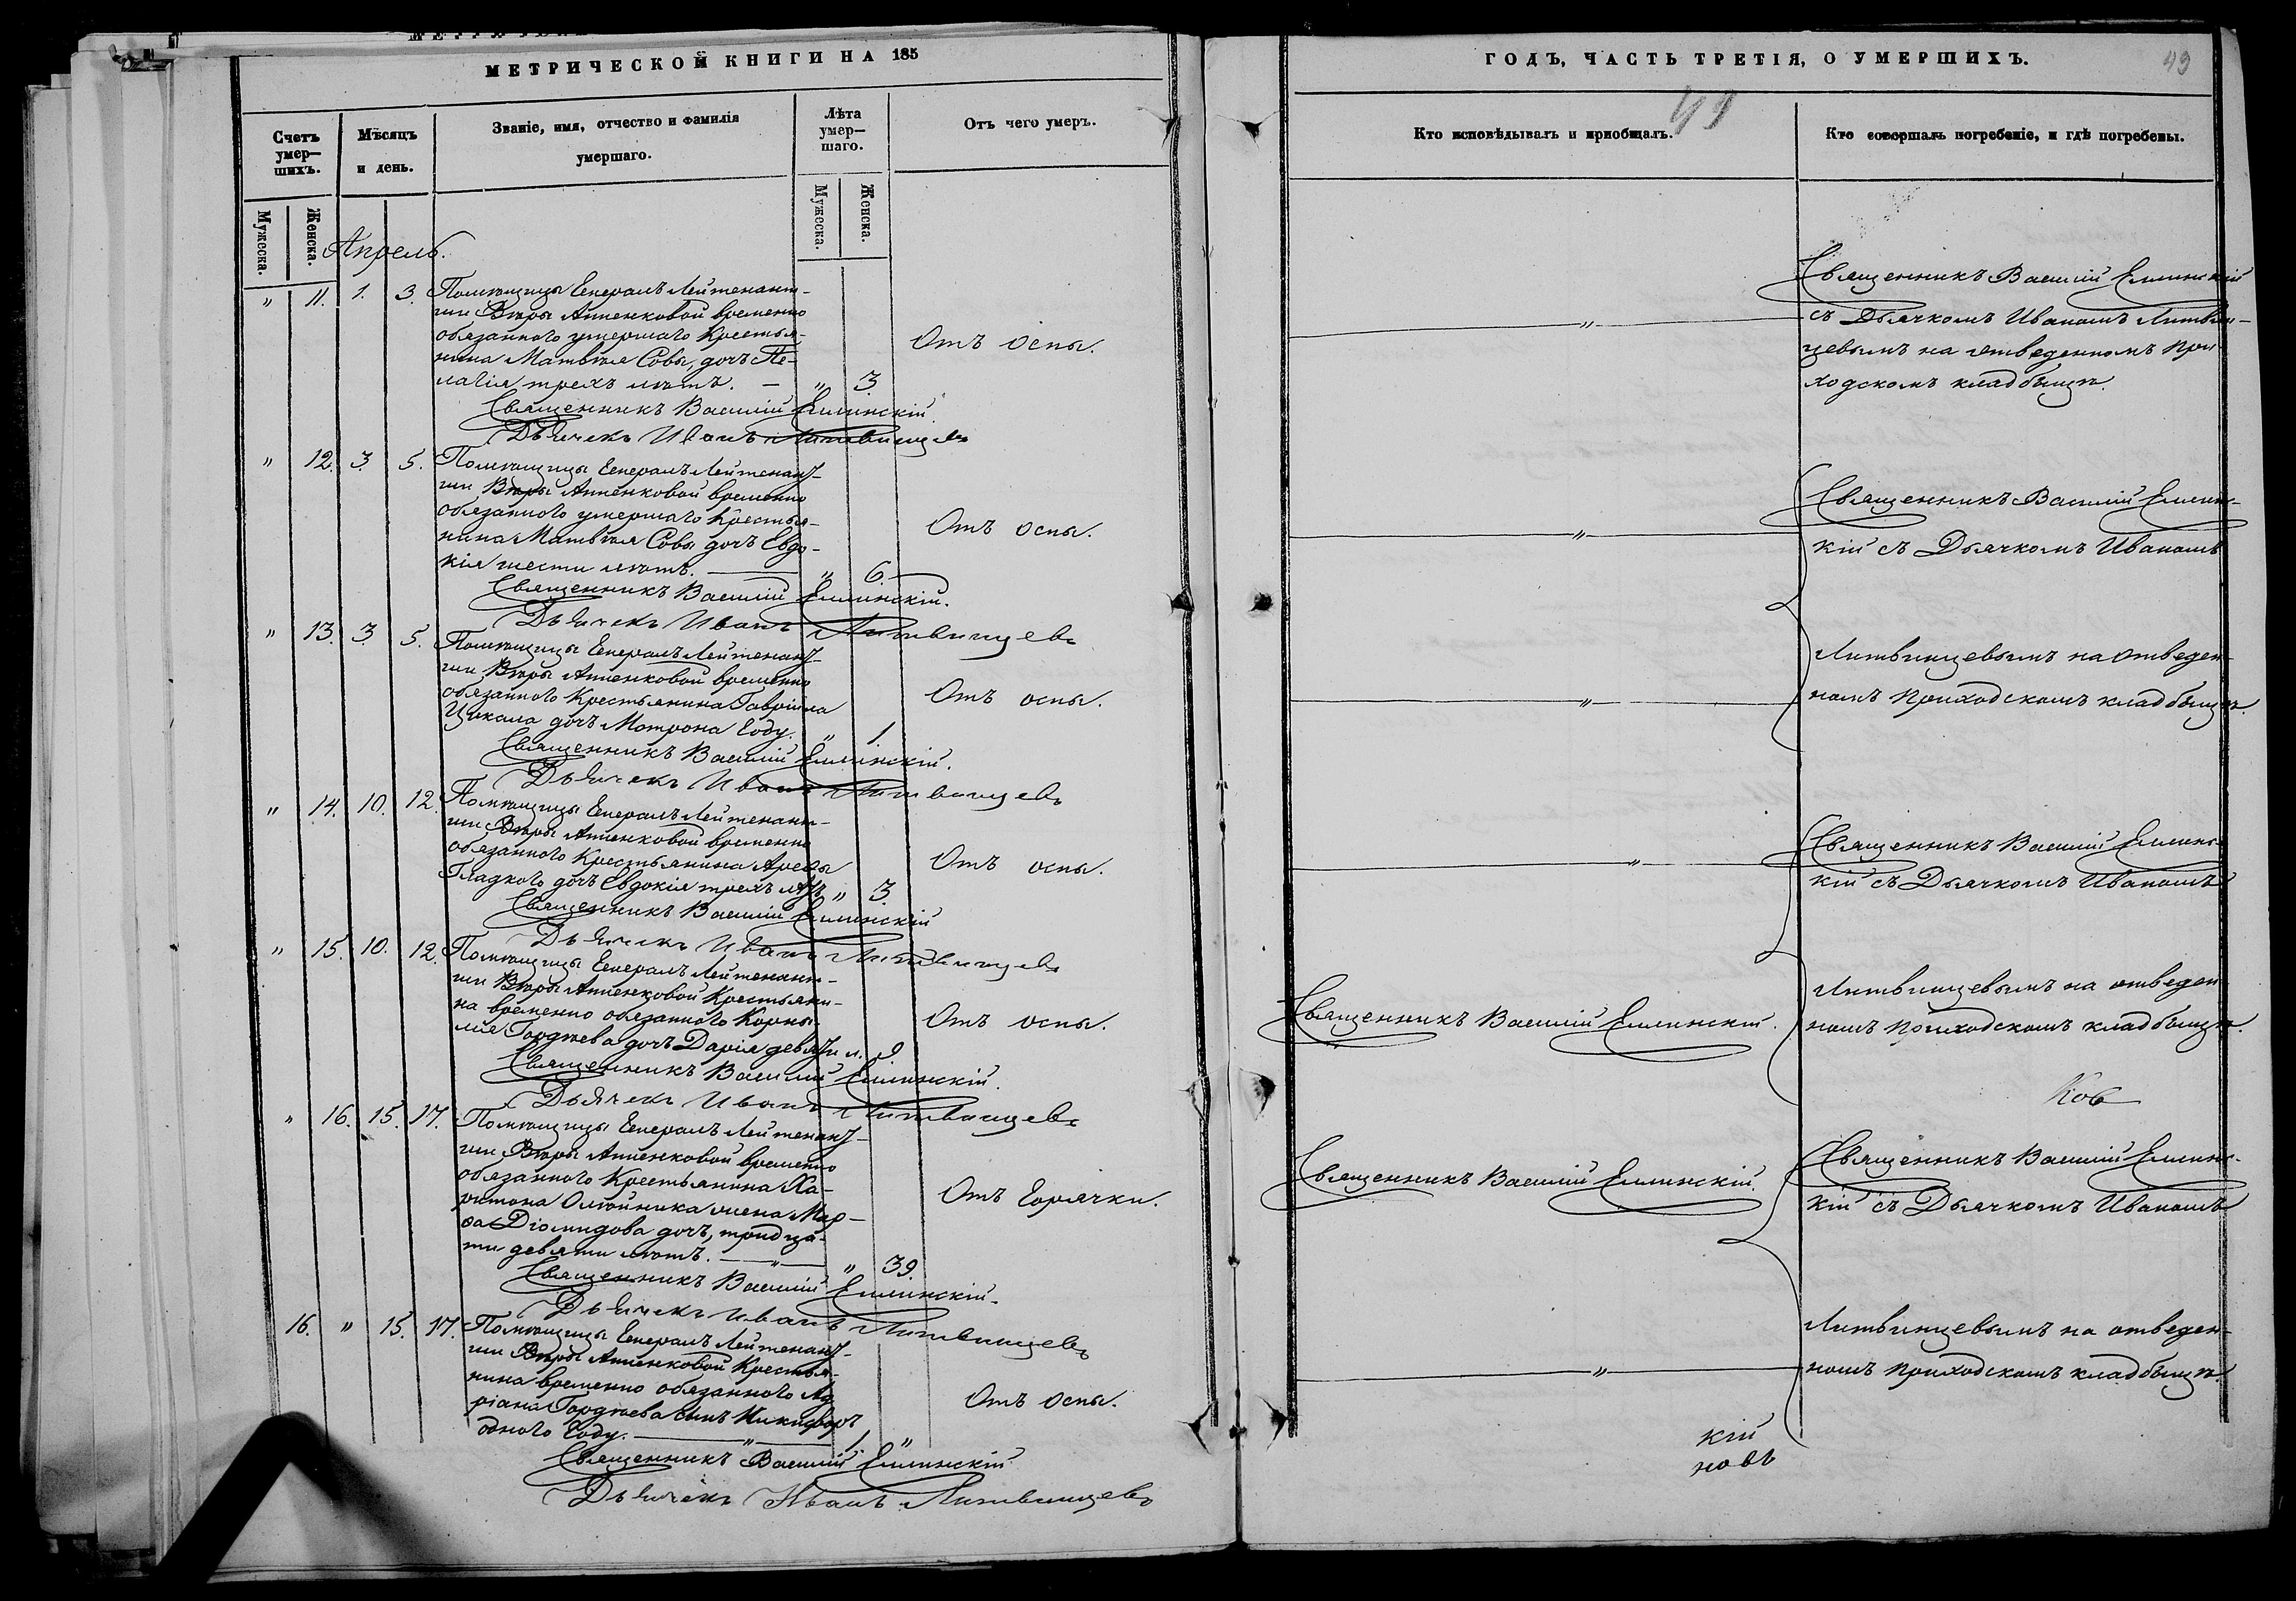 МЕТРИЧЕСКОЙ КНИГИ НА 185
Счетъ умер—шихъ.
Мѣсяцъ и день.
Званіе, имя, отчество и фамилія умершаго.
Лѣта умер—шаго.
Отъ чего умеръ.
Мужеска.
Женска.
Мужеска.
Женска.
Апрель.
" 11. 1. 3. Помѣщицы Генералъ Лейтенант-
ши Вѣры Анненковой временно
обязанного умершаго Крестья-
нина Матвѣя Совы, дочь Пе-
лагія трехъ лѣтъ. — " 3.
Отъ оспы.
Священникъ Василій Еллинскій
Дьячекъ Иванъ Литвинцевъ
" 12. 3. 5. Помѣщицы Генералъ Лейтенант-
ши Вѣры Анненковой временно
обязанного умершаго Крестья-
нина Матвѣя Совы дочь Евдо-
кія шести лѣтъ. — " 6.
Отъ оспы.
Священникъ Василій Еллинскій.
Дьячекъ Иванъ Литвинцевъ
" 13. 3. 5. Помѣщицы Генералъ Лейтенант-
ши Вѣры Анненковой временно
обязанного Крестьянина Гавріила
Цикала дочь Матрона Году. " 1.
Отъ оспы.
Священникъ Василій Еллинскій.
Дьячекъ Иванъ Литвинцевъ
" 14. 10. 12. Помѣщицы Генералъ Лейтенант-
ши Вѣры Анненковой временно
обязанного Крестьянина Арефы
Гладкого дочь Евдокія трехъ лѣтъ " 3.
Отъ оспы.
Священникъ Василій Еллинскій
Дьячекъ Иванъ Литвинцевъ
" 15. 10. 12. Помѣщицы Генералъ Лейтенант-
ши Вѣры Анненковой Крестьяни-
на временно обязанного Корни-
лія Гордѣева дочь Дарія девяти л. 9.
Отъ оспы.
Священникъ Василій Еллинскій.
Дьячекъ Иванъ Литвинцевъ
" 16. 15. 17. Помѣщицы Генералъ Лейтенант-
ши Вѣры Анненковой временно
обязанного Крестьянина Ха-
ритона Олѣйника жена Мар-
ѳа Діомидова дочь, тридца-
ти девяти лѣтъ. — " — " 39.
Отъ Горячки.
Священникъ Василій Еллинскій.
Дьячекъ Иванъ Литвинцевъ
16. " 15. 17. Помѣщицы Генералъ Лейтенант-
ши Вѣры Анненковой Крестья-
нина временно обязанного Ад-
ріана Гордѣева сынъ Никифоръ
одного Году. — " — 1. "
Отъ оспы.
Священникъ Василій Еллинскій
Дьячекъ Иванъ Литвинцевъ
ГОДЪ, ЧАСТЬ ТРЕТІЯ, О УМЕРШИХЪ.
49
49
Кто исповѣдывалъ и пріобщалъ.
Кто совершалъ погребеніе, и гдѣ погребены.
"
Священникъ Василій Еллинскій
съ Дьячкомъ Иваномъ Литвин-
цевымъ на отведенномъ при-
ходскомъ кладбищѣ.
"
Священникъ Василій Еллинс-
кій съ Дьячкомъ Иваномъ
"
Литвинцевымъ на отведен-
номъ приходскомъ кладбищѣ.
"
Священникъ Василій Еллинс-
кій съ Дьячкомъ Иваномъ
Священникъ Василій Еллинскій.
Литвинцевымъ на отведен-
номъ приходскомъ кладбищѣ.
Ков
Священникъ Василій Еллинскій.
Священникъ Василій Еллинс-
кій съ Дьячкомъ Иваномъ
"
Литвинцевымъ на отведен-
номъ приходскомъ кладбищѣ.
кій
новъ